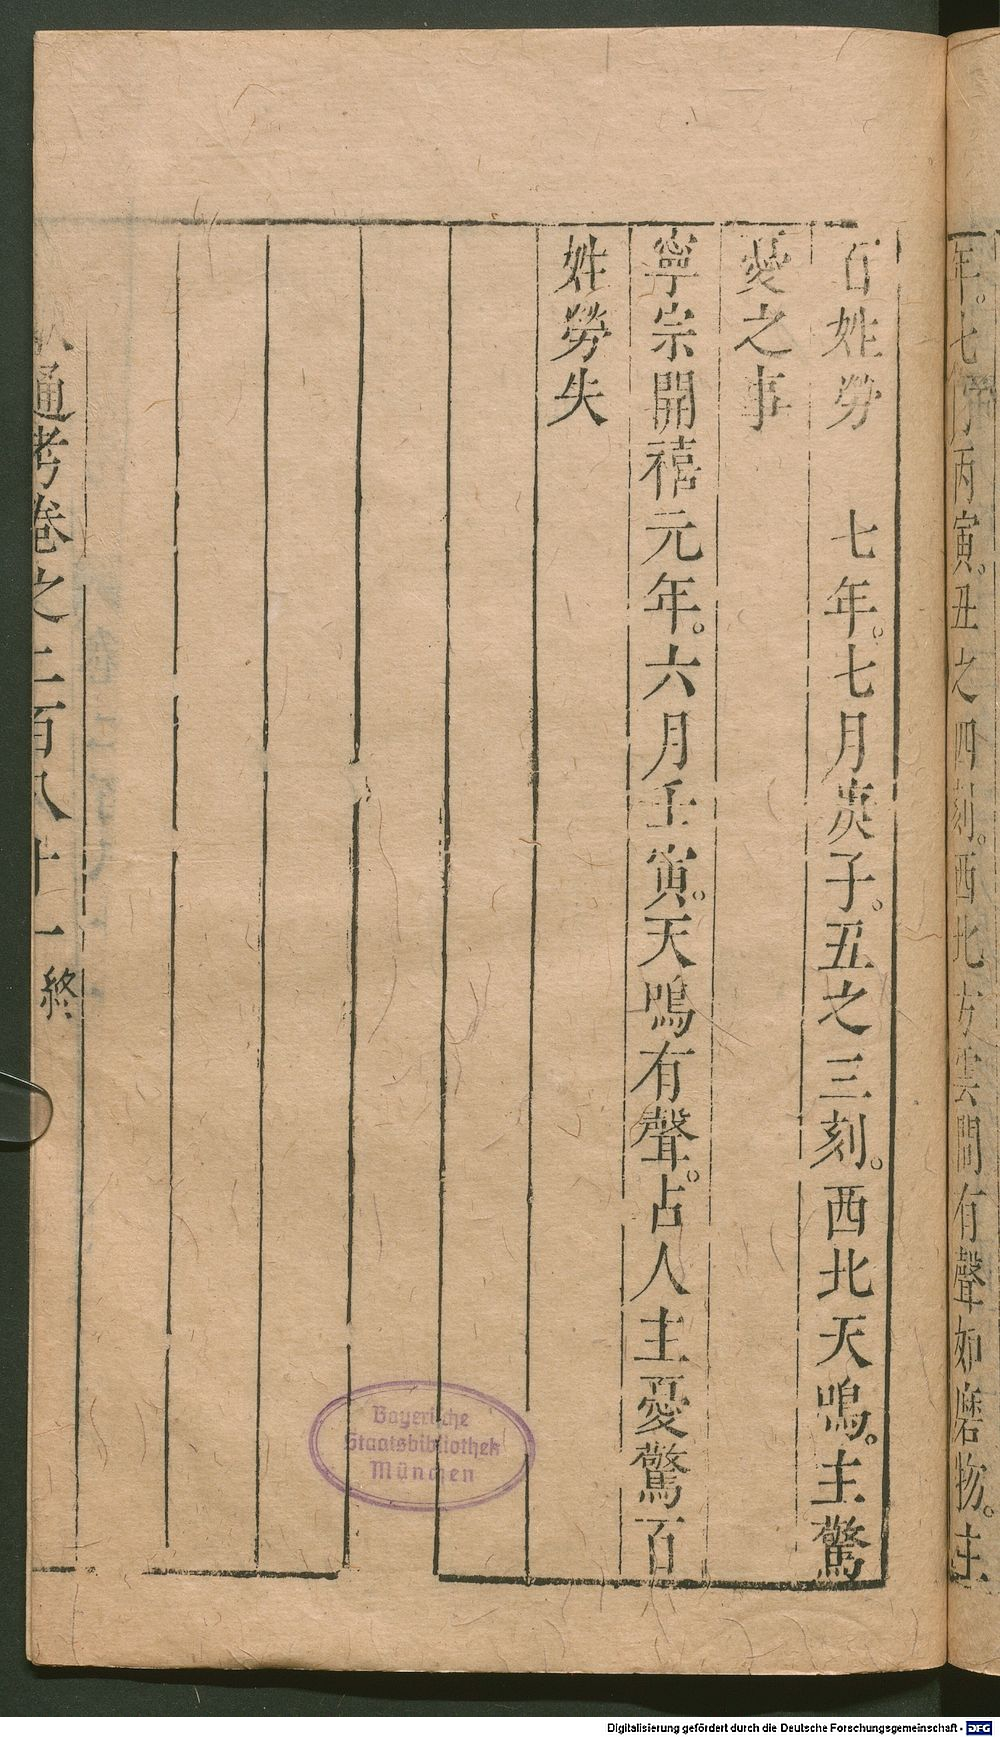 年。七月丙寅。丑之四刻。西北方雲間有聲如磨物。主
百姓勞　七年。七月庚子。丑之三刻。西北天鳴。主驚
憂之事
寧宗開禧元年。六月壬寅。天鳴有聲。占人主憂驚百
姓勞失
通考卷之二百八十一終
Bayerische
Staatsbibliothek
München
Digitalisierung gefördert durch die Deutsche Forschungsgemeinschaft - DFG